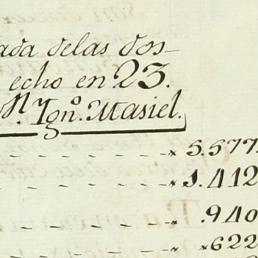 ada delas dos-
echo en 23.
n. Ygn.º Masiel.
5.577
1.412
.940
622